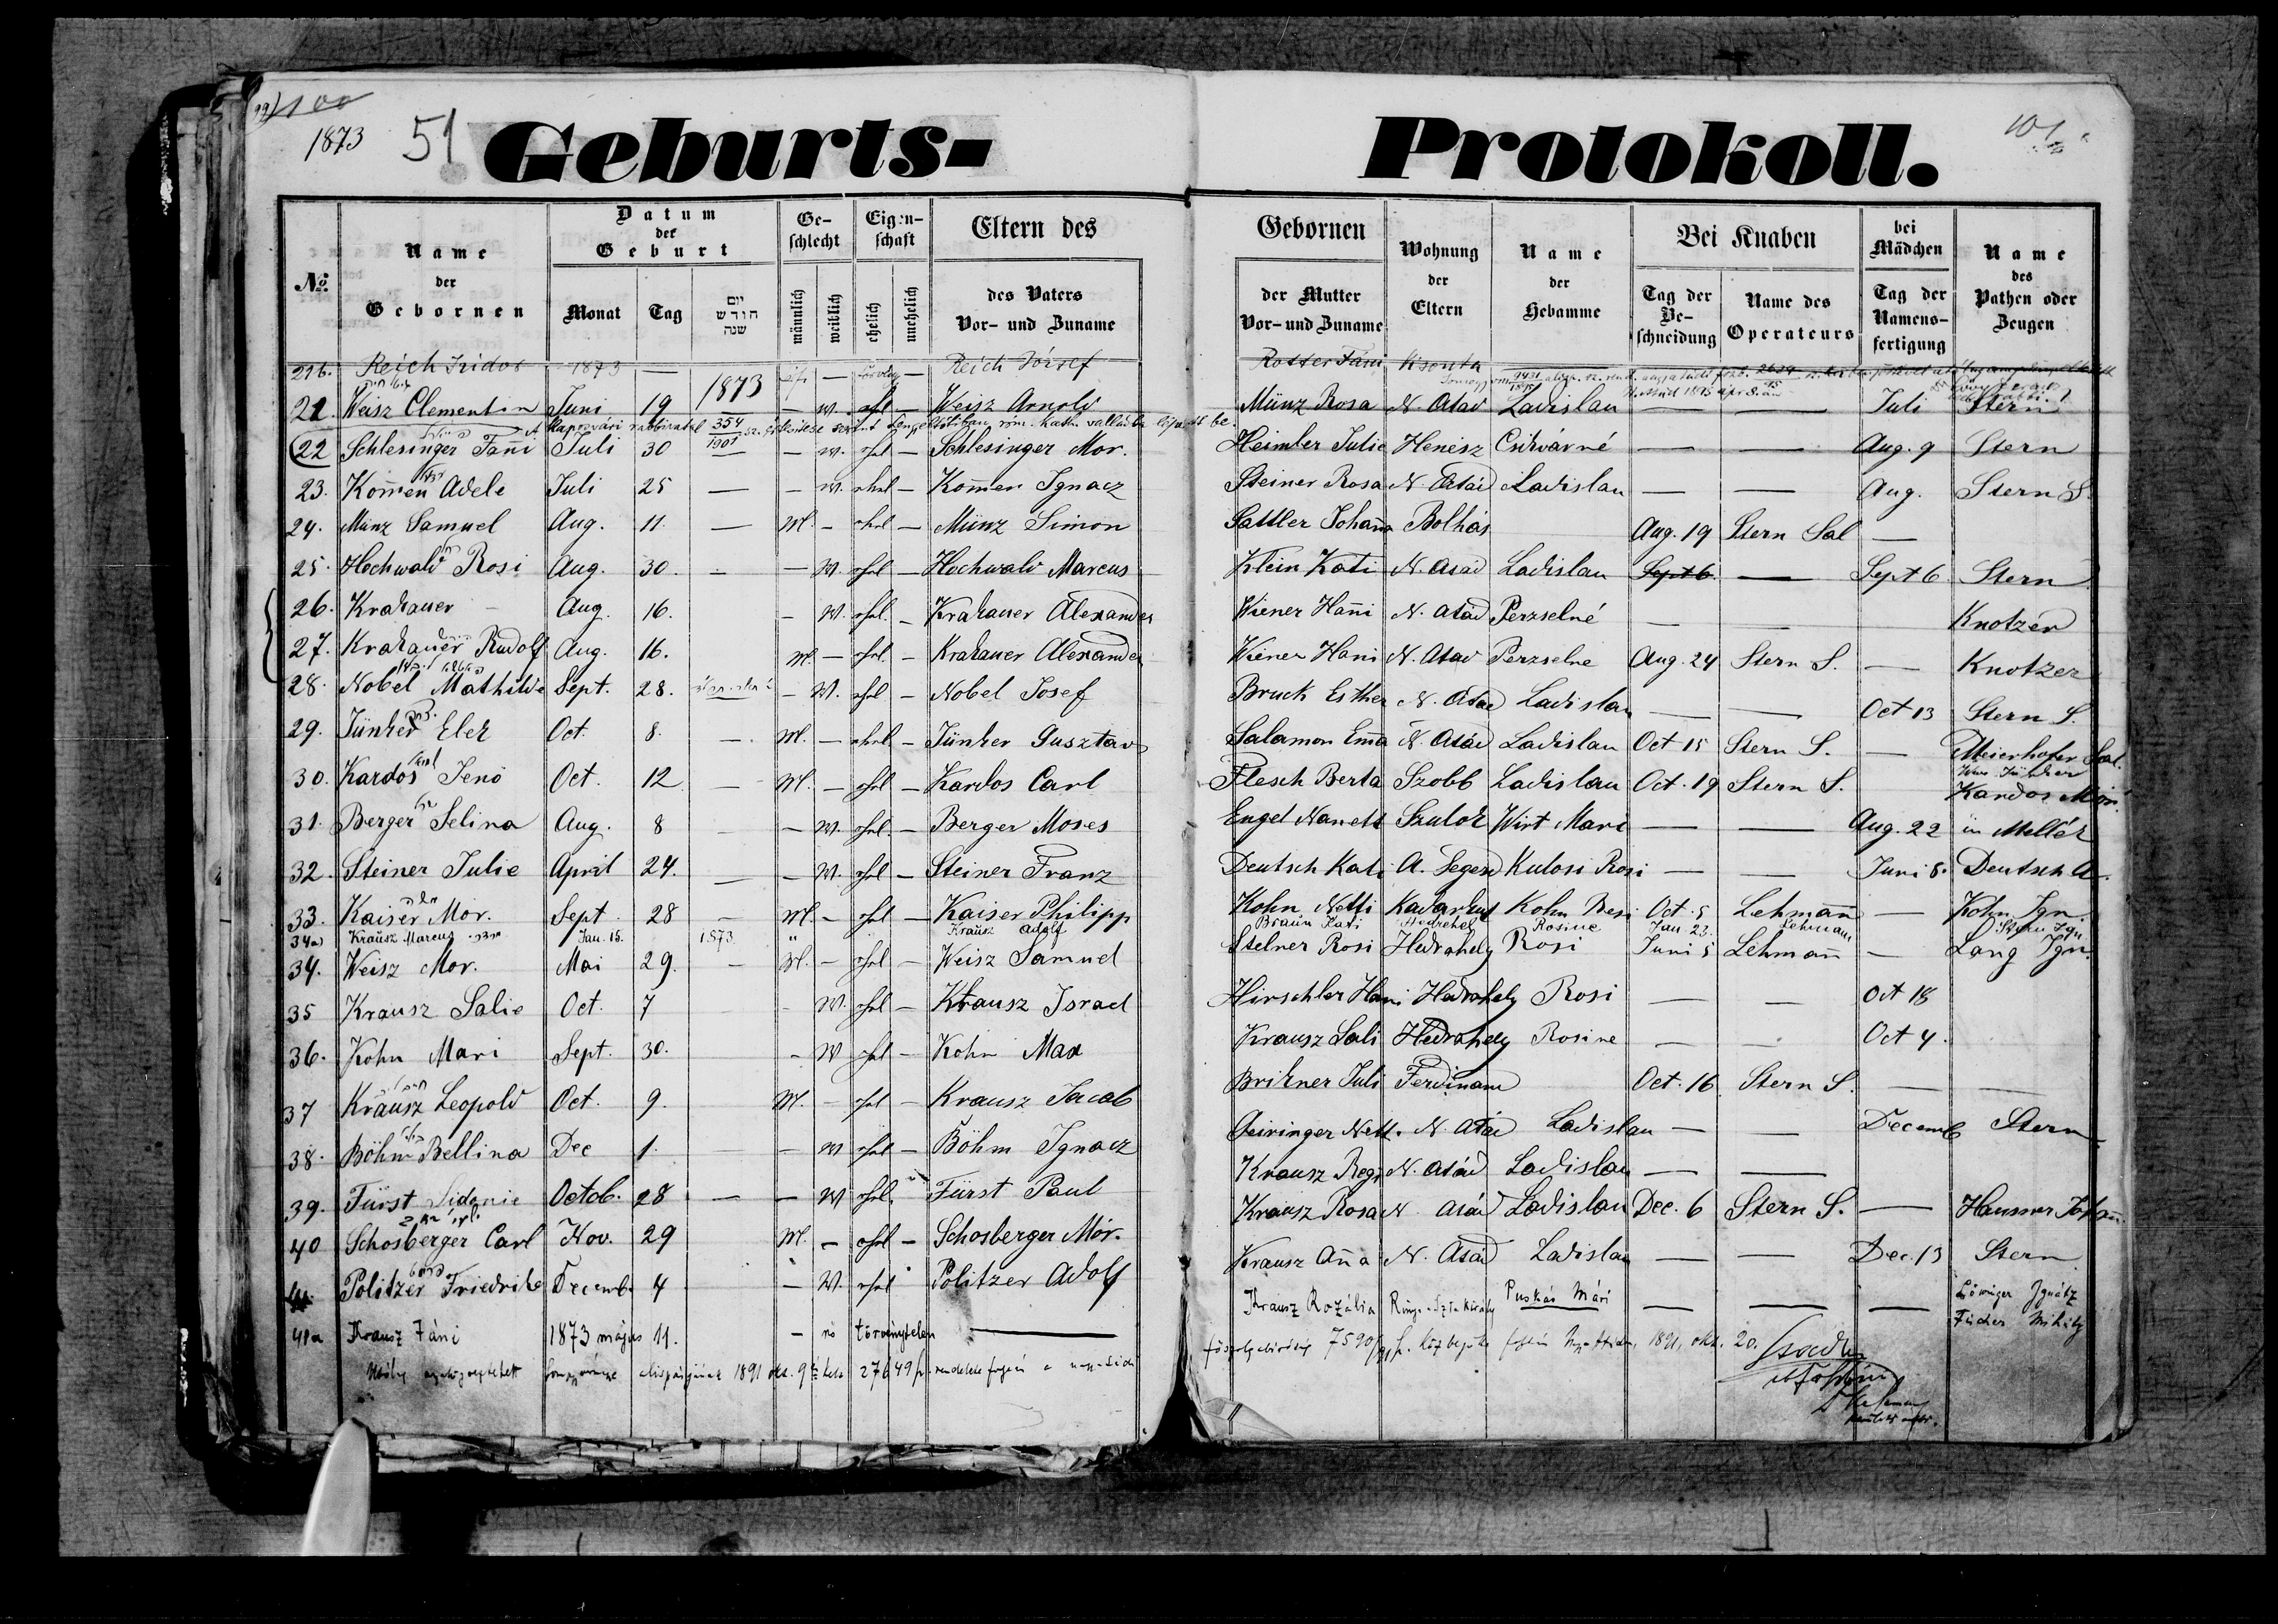 100
1873 51 Geburts- Protokoll. 101
No. Name der Gebornen Datum der Geburt Monat Tag יום חודש שנה Geschlecht männlich weiblich Eigenschaft ehelich unehelich Eltern des Gebornen des Vaters Vor- und Zuname der Mutter Vor- und Zuname Wohnung der Eltern Name der Hebamme Bei Knaben Tag der Beschneidung Name des Operateurs bei Mädchen Tag der Namensfertigung Name des Pathen oder Zeugen
21b. Reich Isidor 1873 — — Reich József Rosser Fáni Kisonta
21. Weisz Clementin Juni 19 1873 — w. ehl — Weisz Arnold Münz Rosa N. Atad Ladislau — — Juli Stern
A Kaposvári rabbinatus 354/1901 sz.
22 Schlesinger Fañi Juli 30 — — w. ehl — Schlesinger Mor. Heimler Julie Henész Csikvárné — — Aug. 9 Stern
23. Kom̃en Adele Juli 25 — — w. ehel — Kom̃en Ignacz Steiner Rosa N. Atád Ladislau — — Aug. Stern S.
24. Münz Samuel Aug. 11. — M. — ehel — Münz Simon Sattler Johañа Bolhás Aug. 19 Stern Sal —
25. Hochwald Rosi Aug. 30. — — W. ehl — Hochwald Marcus Klein Kati N. Atad Ladislau Sept 6 — Sept 6 Stern
26. Krakauer — Aug. 16. — W. ehl. — Krakauer Alexander Wiener Hañi N. Atád Perzselné — — Knotzer
27. Krakauer Rudolf Aug. 16. M. — ehl. — Krakauer Alexander Wiener Hani N. Atad Perzselne Aug. 24 Stern S. — Knotzer
28. Nobel Mathilde Sept. 28. — W. ehl — Nobel Josef Bruck Esther N. Atad Ladislau — — Oct 13 Stern S.
29. Jünker Elek Oct. 8. — M. — ehel — Jünker Gusztav Salamon Em̃a N. Atád Ladislau Oct 15 Stern S. — Meierhofer Sal.
30. Kardos Jenö Oct. 12 — M. — ehl — Kardos Carl Flesch Berta Szobb Ladislau Oct. 19 Stern S. Kardos Mór
31. Berger Selina Aug. 8 — — W. ehl. — Berger Moses Engel Nanett Szulok Wirt Mari — — Aug. 22 in Mellék
32. Steiner Julie April 24. — — W. ehl — Steiner Franz Deutsch Kati A. Segesd Kulosi Rosi — — Juni 8. Deutsch A.
33. Kaiser Mor. Sept. 28 — M — ehl — Kaiser Philipp Kohn Netti Kadarkut Kohn Resi Oct. 5 Lehmañ — Kohn Ign.
34a) Krausz Marcus Jan. 15. 1873 " Krausz Adolf Braun Kati Hedrehel Rosine Jan 23. Lehmann Stern Ign
34. Weisz Mor. Mai 29. — M. — ehl — Weisz Samuel Stelner Rosi Hedrahely Rosi Juni 5 Lehmañ — Lang Ign.
35 Krausz Salie Oct. 7 — W. ehl — Krausz Israel Hirschler Hani Hedrahely Rosi — — Oct 18
36. Kohn Mari Sept. 30. — W ehl — Kohn Max Krausz Sali Hedrahely Rosine — Oct 4.
37 Krausz Leopold Oct. 9. M. — ehl — Krausz Jacob Brikner Juli Ferdinand Oct. 16 Stern S. — —
38. Böhm Bellina Dec 1. — — W ehl — Böhm Ignacz Geiringer Nett. N. Atád Ladislau — — Decemb Stern
39. Fürst Sidonie Octob. 28 — — W ehl. Fürst Paul Krausz Regi N. Atád Ladislau — —
40 Schosberger Carl Nov. 29 M. — ehl — Schosberger Mór. Krausz Rosa N. Atád Ladislau Dec. 6 Stern S. — Hausner Johañ
41. Politzer Friedrike Decemb 4 — W. ehl Politzer Adolf Krausz Añа N. Atád Ladislau — — Dec. 13 Stern
41a Krausz Fáni 1873 május 11. — nő törvénytelen — Krausz Rozália Rinya-Szt-Király Puskás Mári — — — Löwinger Ignátz
Fischer Mihály
1891 okt. 9 27649 7590 1891, okt. 20.